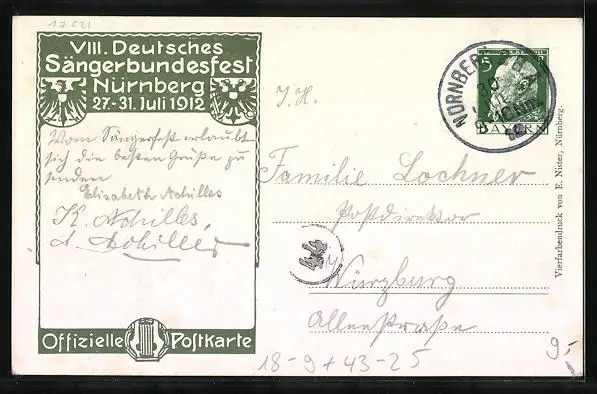 17621
VIII. Deutsches
Sängerbundesfest
Nürnberg
27-31. Juli 1912
Vom Sängerfest erlaubt
sich die besten Grüße zu
senden
Elisabeth Achilles
K. Achilles,
A. Achilles
Offizielle Postkarte
NÜRNBERG
30
5
BAYERN
J. H.
Familie Lochner
Postdirektor
Würzburg
Alleestraße
44
Vierfarbendruck von E. Nister, Nürnberg.
18-9+43-25
9,-